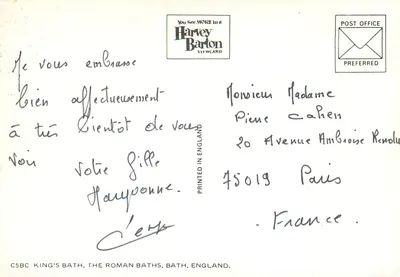 You See MORE in a
Harvey
Barton
VIEWLAND
POST OFFICE
PREFERRED
Je vous embrasse
bien affectueusement
à très bientôt de vous
voir Votre fille
Maryvonne.
Monsieur Madame
Pierre Cahen
20 Avenue Ambroise Rendu
75019 Paris
France.
PRINTED IN ENGLAND
C5BC KING'S BATH, THE ROMAN BATHS, BATH, ENGLAND.